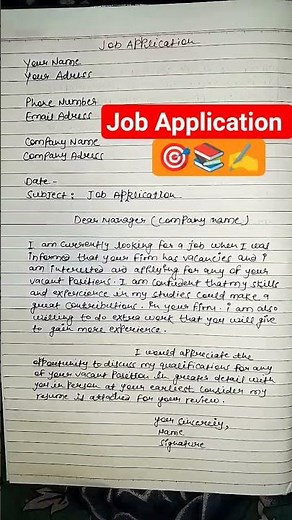 Job Application
Your Name
Your Adress
Phone Number
Email Adress
Job Application
🎯📚✍️
Company Name
Company Adress
Date -
Subject: Job Application
Dear Manager (company name)
I am currently looking for a job when I was
informed that your firm has vacancies and i
am interested aid applying for any of your
vacant positions. I am confident that my skills
and experience in my studies could make a
great contributions. In your firm. i am also
willing to do extra work that you will give
to gain more experience.
I would appreciate the
opportunity to discuss my qualification for any
of your vacant Position. In greates detail with
you in Person at your earliest consider my
resume is attached for your review.
your sincerely,
Name
Signature